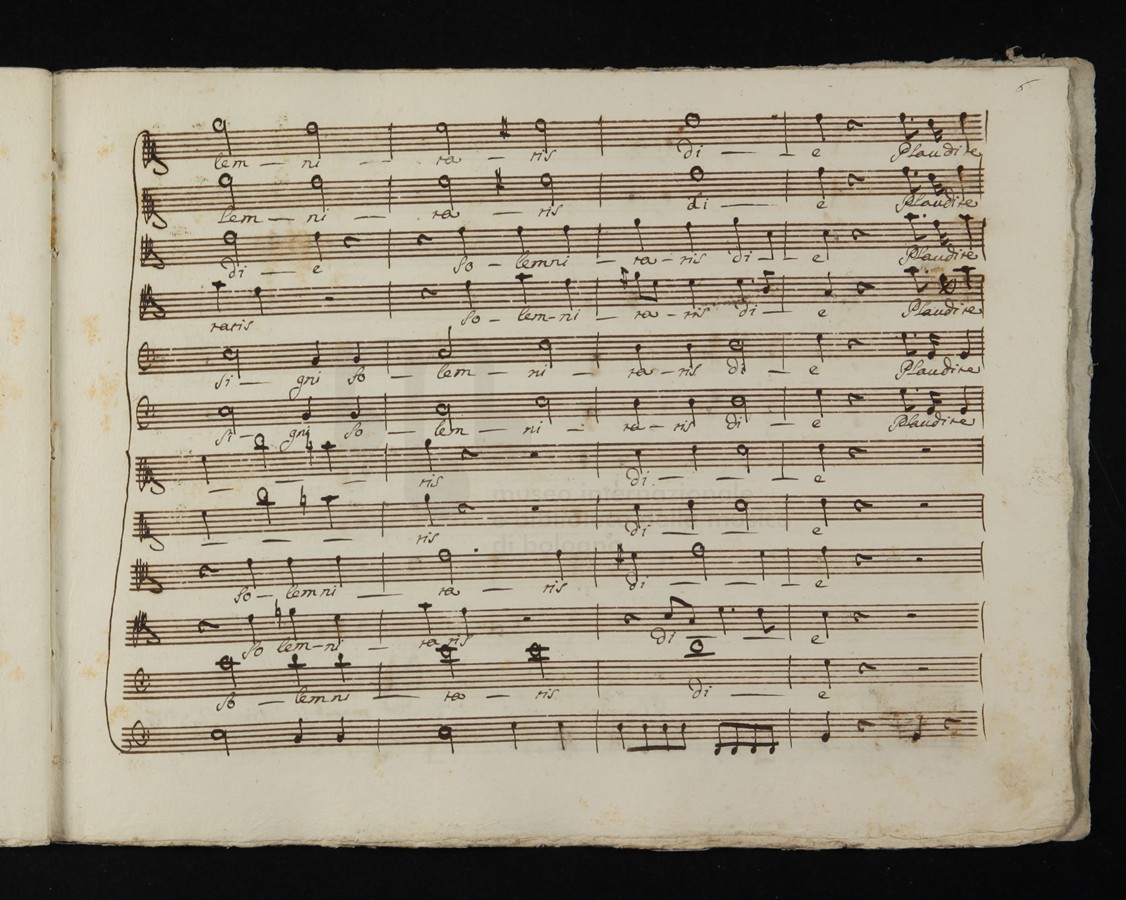 6
lem — ni — ra — ris di — e Plaudite
lem — ni — ra — ris di — e Plaudite
di — e So — lemni — ra — ris di — e Plaudite
raris So — lem — ni — ra — ris di — e Plaudite
si — gni so — lem — ni — ra — ris di — e Plaudite
si — gni so — lem — ni — ra — ris di — e Plaudite
— — — ris di — — — e
museo internazionale
— — — ris di — — — e
di bologna
so — lemni — ra ris di — — — e
so lem — ni — ra ris di e
so — lemni — ra — ris di — e